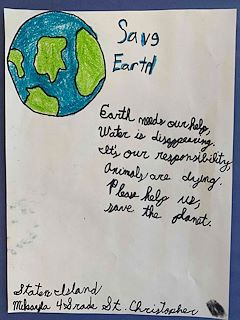 Save
Earth
Earth needs our help,
Water is disappearing.
It's our responsibility,
Animals are dying.
Please help us,
save the planet.
Staten Island
Mikayla 4 Grade St. Christopher